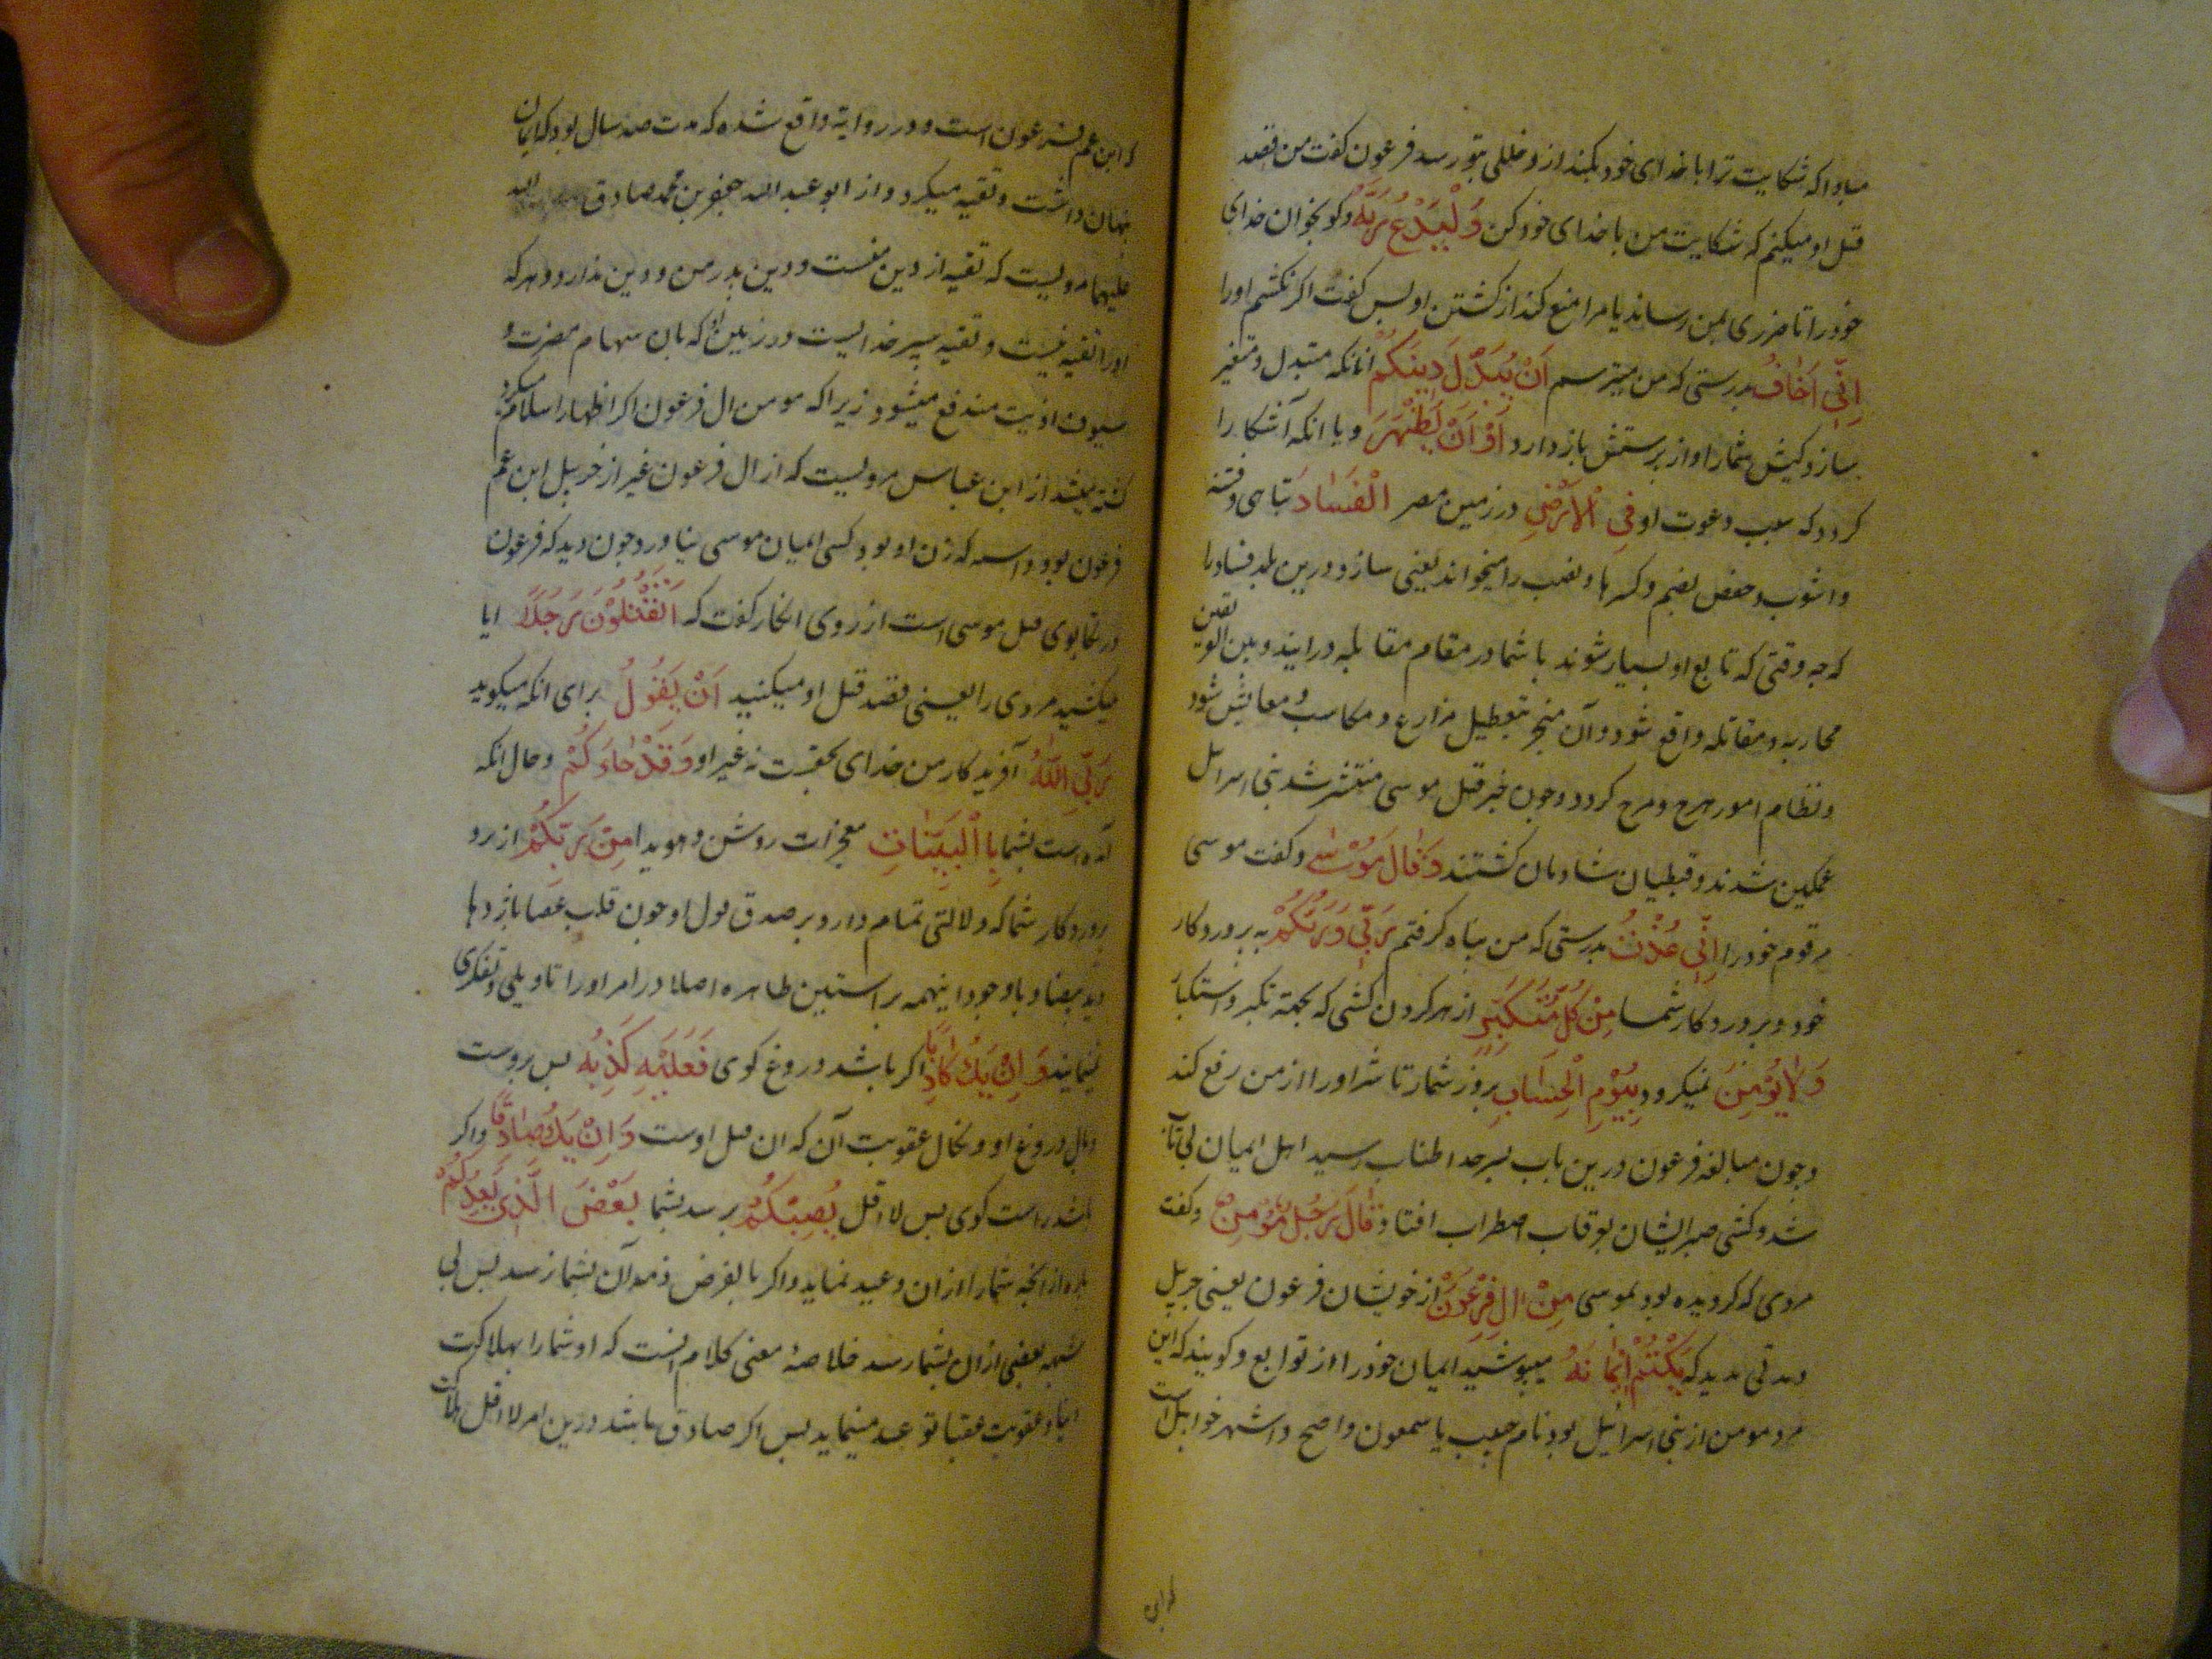 مبادا که شکایت ترا با خدای خود بکند از و خللی بتو رسد فرعون کفت من قصد
قتل او میکنم که شکایت من با خدای خود کن وَلْيَدْعُ رَبَّهُ وکو بخوان خدای
خود را تا ضرری بمن رساند یا مرا منع کند از کشتن او پس کفت اکر نکشم اورا
اِنِّی اَخَافُ بدرستی که من میترسم اَنْ یُبَدِّلَ دِینَکُمْ انانکه متبدل و متغیر
سازد کیش شمارا و از پرستش باز دارد اَوْ اَنْ یُظْهِرَ و یا انکه آشکارا
کردد که سبب دعوت او فِی الْاَرْضِ در زمین مصر الْفَسَادَ تباهی و فتنه
و اشوب و حفص بضم وکسر ها و نصب را میخواند یعنی سازد درین بلد فساد را
که چه وقتی که تابع او بسیار شوند با شما در مقام مقابله در ایند و بین
محاربه و مقاتله واقع شود و آن منجر بتعطیل مزارع و مکاسب و معایش شود
و نظام امور هرج و مرج کردد و چون خبر قتل موسی منتشر شد بنی اسرائل
غمکین شدند و قبطیان شادمان کشتند وَقَالَ مُوْسٰی و کفت موسی
مر قوم خود را اِنِّی عُذْتُ بدرستی که من پناه کرفتم بِرَبِّی وَرَبِّکُمْ به پروردکار
خود و پروردکار شما مِنْ کُلِّ مُتَکَبِّرٍ از هر کردن کشی که بجهة تکبر و استکبار
وَلَا یُؤْمِنُ نمیکرود بِیَوْمِ الْحِسَابِ بروز شمار تا شر او را از من رفع کند
و چون مبالغه فرعون درین باب بسرحد اطناب رسید اهل ایمان
شد و کشتی صبر ایشان بوقاب اضطراب افتاد وَقَالَ رَجُلٌ مُؤْمِنٌ وکفت
مردی که کرویده بود بموسی مِنْ اٰلِ فِرْعَوْنَ از خویشان فرعون یعنی خربیل
مدتی مدید که یَکْتُمُ اِیمَانَهُ میپوشید ایمان خود را از توابع و کویند که این
مرد مومن از بنی اسرائیل بود نام حبیب یا سمعون و اصح و اشهر خرابیل است
که این
که ابن عم فرعون است و در روایة واقع شده که مدت صد سال بود که ایمان
پنهان داشت و تقیه میکرد و از ابو عبد الله جعفر بن محمد صادق الله
علیهما مرویست که تقیه از دین منست و دین پدر من و دین ندارد هر که
اورا تقیه نیست و تقیه سپر خدایست در زمین او که بان سهام مضرت و
سیوف اذیت مندفع میشود زیرا که مومن ال فرعون اکر اظهار اسلام میکرد
کشته میشد از ابن عباس مرویست که از ال فرعون غیر از خربیل ابن عم
فرعون بود و اسیه که زن او بود کسی ایمان موسی نیاورد چون دید که فرعون
در تکاپوی قتل موسی است از روی انکار کفت که اَتَقْتُلُوْنَ رَجُلًا ایا
میکشید مردی را یعنی قصد قتل او میکنید اَنْ یَقُولَ برای انکه میکوید
رَبِّیَ اللّٰهُ آفریدکار من خدای بحقست نه غیر او وَقَدْ جَاءَکُمْ و حال انکه
آمده است بشما بِالْبَیِّنَاتِ معجزات روشن و هویدا مِنْ رَبِّکُمْ از
پروردکار شما که دلالتی تمام دارد بر صدق قول او چون قلب عصا باژدها
و ید بیضا و باوجود اینهمه براهین ظاهره اصلا در امر او را تاویلی و تفکری
نمینمایند وَاِنْ یَكُ کَاذِبًا اکر باشد دروغ کوی فَعَلَیْهِ کَذِبُهُ پس بروست
وبال دروغ او و نکال عقوبت آن که ان قتل اوست وَاِنْ یَكُ صَادِقًا واکر
باشد راست کوی پس لا اقل یُصِبْکُمْ برسد بشما بَعْضُ الَّذِی یَعِدُکُمْ
پاره از انچه شمارا ازان وعید نماید و اکر بالفرض همه آن بشما نرسد پس بی
شبهه بعضی ازان بشما رسد خلاصهٔ معنی کلام انست که او شمارا بهلاکت
دنیا و عقوبت عقبا توعید مینماید پس اکر صادق باشد درین امر لا اقل هلاکت